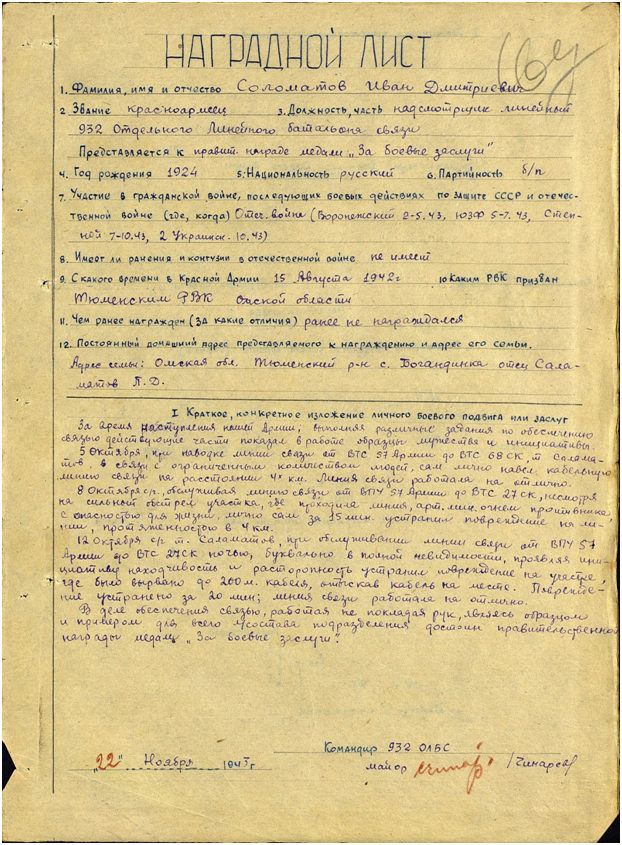 НАГРАДНОЙ ЛИСТ
1. Фамилия, имя и отчество Соломатов Иван Дмитриевич
2. Звание красноармеец 3. Должность, часть надсмотрщик линейный
932 Отдельного Линейного батальона связи
Представляется к правит. награде медали "За боевые заслуги"
4. Год рождения 1924 5. Национальность русский 6. Партийность б/п
7. Участие в гражданской войне, последующих боевых действиях по защите СССР и отече-
ственной войне (где, когда) Отеч. война (Воронежский 2-5.43, ЮЗФ 5-7.43, Степ-
ной 7-10.43, 2 Украинск. 10.43)
8. Имеет ли ранения и контузии в отечественной войне не имеет
9. С какого времени в Красной Армии 15 Августа 1942 г 10 Каким РВК призван
Тюменским РВК Омской области
11. Чем ранее награжден (за какие отличия) ранее не награждался
12. Постоянный домашний адрес представляемого к награждению и адрес его семьи.
Адрес семьи: Омская обл. Тюменский р-н с. Богандинка отец Сала-
матов П. Д.
I Краткое, конкретное изложение личного боевого подвига или заслуг
За время наступления нашей Армии, выполняя различные задания по обеспечению
связью действующие части показал в работе образцы мужества и инициативы.
5 Октября, при наводке линии связи от ВТС 57 Армии до ВТС 68 СК, т. Салама-
тов, в связи с ограниченным количеством людей, сам лично навел кабельную
линию связи на расстоянии 4х км. Линия связи работала на отлично.
8 Октября с/г, обслуживая линию связи от ВПУ 57 Армии до ВТС 27 СК, несмотря
на сильный обстрел участка, где проходила линия, арт. мин. огнем противника,
с опасностью для жизни, лично сам за 15 мин. устранил повреждение на ли-
нии, протяженностью в 4 км.
12 Октября с/г т. Саламатов, при обслуживании линии связи от ВПУ 57
Армии до ВТС 27 СК ночью, буквально в полной невидимости, проявляя ини-
циативу находчивость и расторопность устранил повреждение на участке,
где было вырвано до 200 м. кабеля, отыскав кабель на месте. Поврежде-
ние устранено за 20 мин; линия связи работала на отлично.
В деле обеспечения связью, работая не покладая рук, являясь образцом
и примером для всего состава подразделения достоин правительственной
награды медали "За боевые заслуги".
Командир 932 ОЛБС
"22" Ноября 1943 г майор /Чинарев/